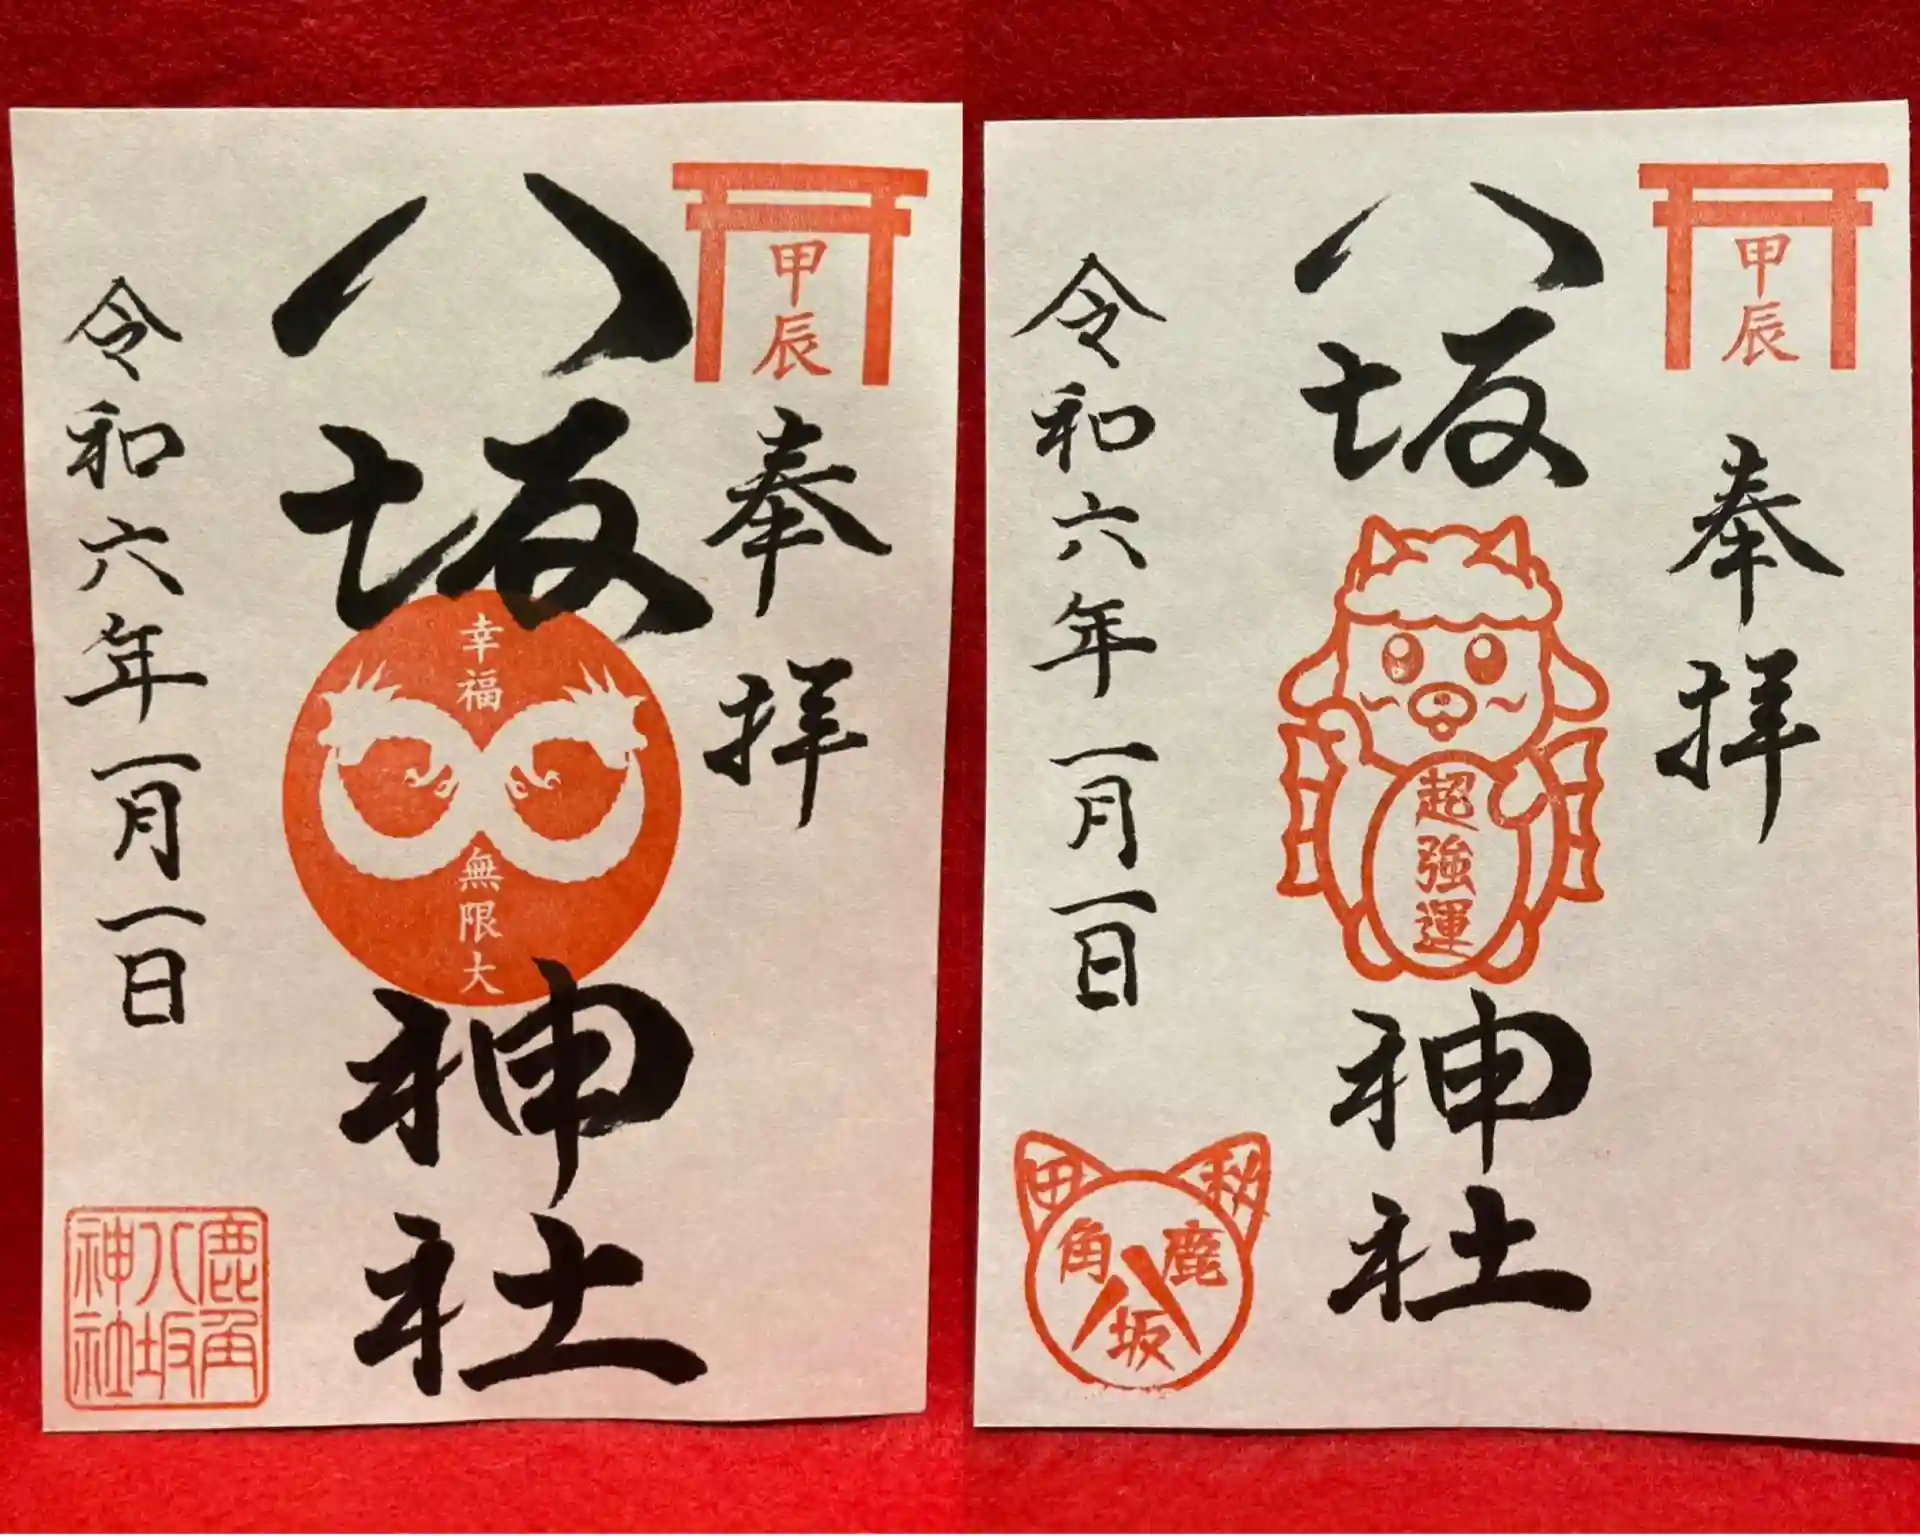 甲辰
奉拝
八坂神社
幸福
無限大
令和六年一月一日
鹿角
八坂
神社
甲辰
奉拝
八坂神社
超強運
令和六年一月一日
秋
田
鹿
角
八
坂